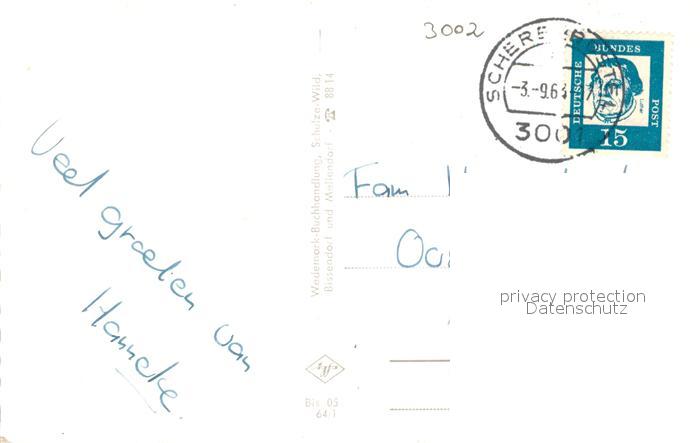 3002
BUNDES
DEUTSCHE
POST
Luther
15
-3.-9.63
3001
Veel groeten van
Hanneke.
Wedemark-Buchhandlung, Schulze-Wild,
Bissendorf und Mellendorf - ☎ 88 14
Fam
privacy protection
Datenschutz
Bis 05
64/1